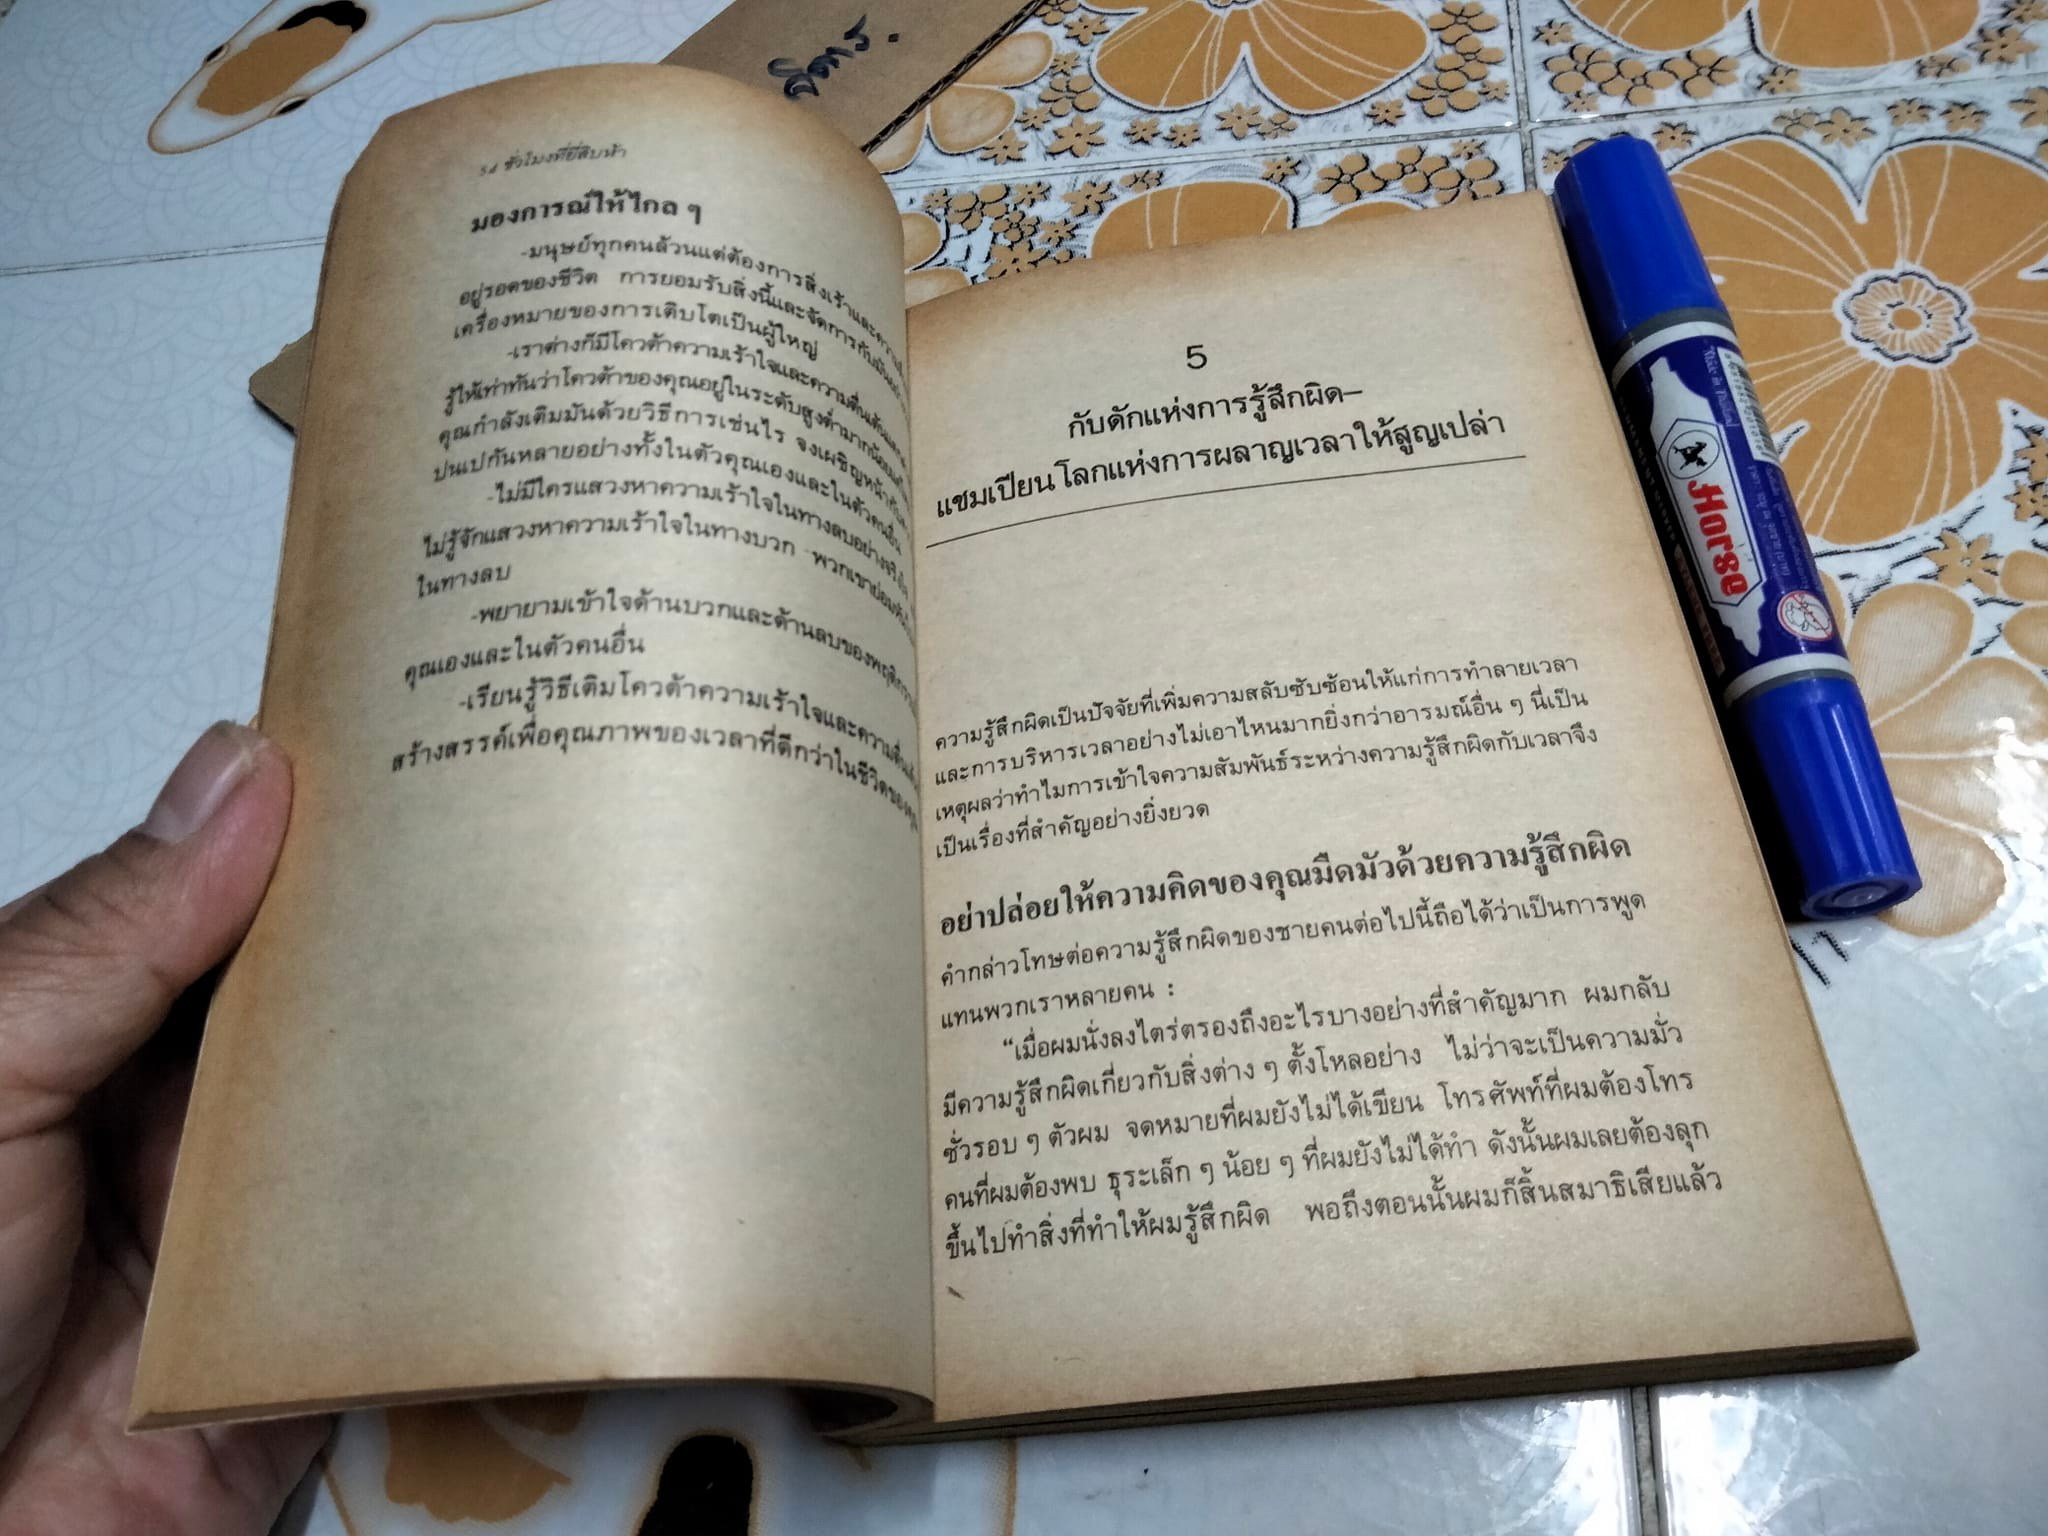 54 ชั่วโมงที่ยี่สิบห้า
มองการณ์ให้ไกล ๆ
-มนุษย์ทุกคนล้วนแต่ต้องการสิ่งเร้าและความ
อยู่รอดของชีวิต การยอมรับสิ่งนี้และจัดการกับมัน
เครื่องหมายของการเติบโตเป็นผู้ใหญ่
-เราต่างก็มีโควต้าความเร้าใจและความตื่นเต้น
รู้ให้เท่าทันว่าโควต้าของคุณอยู่ในระดับสูงต่ำมากน้อย
คุณกำลังเติมมันด้วยวิธีการเช่นไร จงเผชิญหน้ากับ
ปนเปกันหลายอย่างทั้งในตัวคุณเองและในตัวคนอื่น
-ไม่มีใครแสวงหาความเร้าใจในทางลบอย่าง
ไม่รู้จักแสวงหาความเร้าใจในทางบวก พวกเขาย่อม
ในทางลบ
-พยายามเข้าใจด้านบวกและด้านลบของ
คุณเองและในตัวคนอื่น
-เรียนรู้วิธีเติมโควต้าความเร้าใจและความ
สร้างสรรค์เพื่อคุณภาพของเวลาที่ดีกว่าในชีวิตของ
5
กับดักแห่งการรู้สึกผิด–
แชมเปียนโลกแห่งการผลาญเวลาให้สูญเปล่า
ความรู้สึกผิดเป็นปัจจัยที่เพิ่มความสลับซับซ้อนให้แก่การทำลายเวลา
และการบริหารเวลาอย่างไม่เอาไหนมากยิ่งกว่าอารมณ์อื่น ๆ นี่เป็น
เหตุผลว่าทำไมการเข้าใจความสัมพันธ์ระหว่างความรู้สึกผิดกับเวลาจึง
เป็นเรื่องที่สำคัญอย่างยิ่งยวด
อย่าปล่อยให้ความคิดของคุณมืดมัวด้วยความรู้สึกผิด
คำกล่าวโทษต่อความรู้สึกผิดของชายคนต่อไปนี้ถือได้ว่าเป็นการพูด
แทนพวกเราหลายคน :
“เมื่อผมนั่งลงไตร่ตรองถึงอะไรบางอย่างที่สำคัญมาก ผมกลับ
มีความรู้สึกผิดเกี่ยวกับสิ่งต่าง ๆ ตั้งโหลอย่าง ไม่ว่าจะเป็นความมั่ว
ซั่วรอบ ๆ ตัวผม จดหมายที่ผมยังไม่ได้เขียน โทรศัพท์ที่ผมต้องโทร
คนที่ผมต้องพบ ธุระเล็ก ๆ น้อย ๆ ที่ผมยังไม่ได้ทำ ดังนั้นผมเลยต้องลุก
ขึ้นไปทำสิ่งที่ทำให้ผมรู้สึกผิด พอถึงตอนนั้นผมก็สิ้นสมาธิเสียแล้ว
Horse